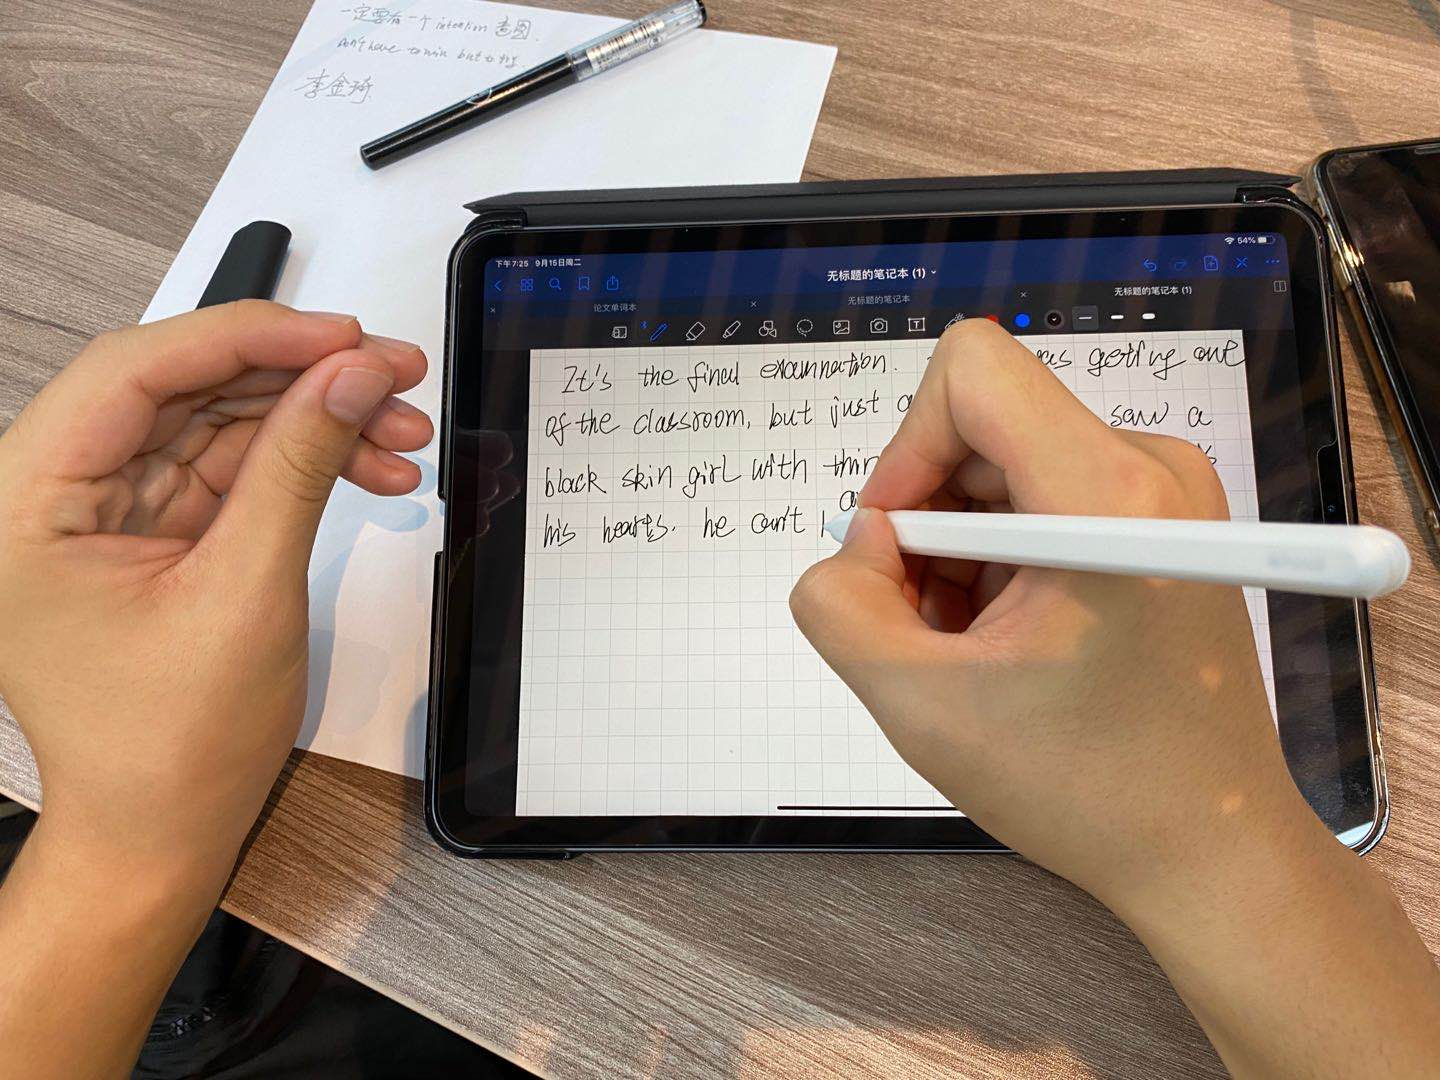 一定要有一个 intention 意图.
don't have to win but to try.
李金琦
下午7:25 9月15日周二
54%
无标题的笔记本 (1)
论文单词本
无标题的笔记本
无标题的笔记本 (1)
It's the final examnation. getting out
of the classroom, but just saw a
black skin girl with
his hearts. he can't